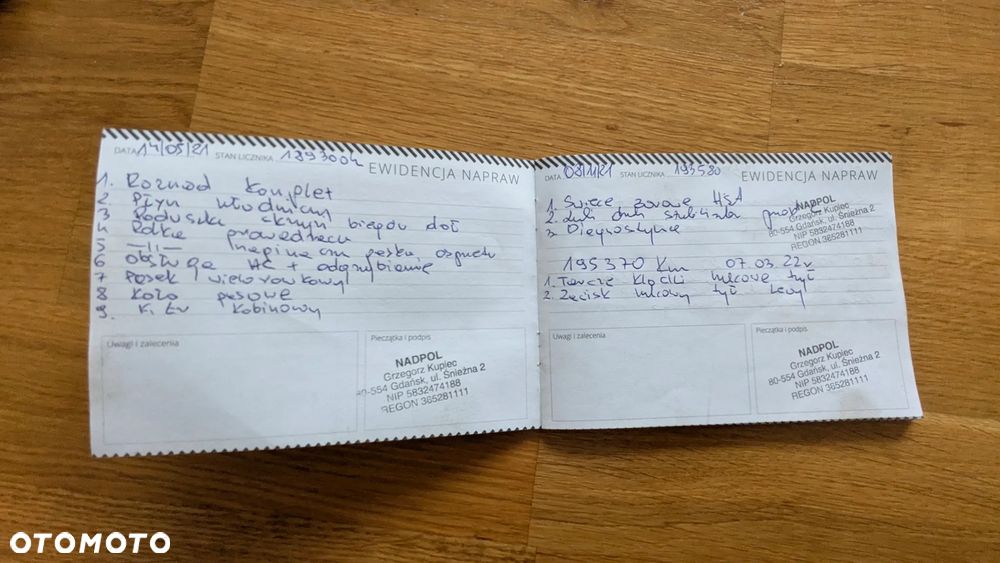 DATA 14/05/21 STAN LICZNIKA 189300
EWIDENCJA NAPRAW
1. Rozrząd komplet
2 Płyn chłodniczy
3 Poduszka skrzyni biegów dół
4 Rolka prowadząca
5 —||— napinacza paska osprzętu
6 obsługa AC + odgrzybianie
7 Pasek wielorowkowy
8 Koło pasowe
9. Filtr kabinowy
Uwagi i zalecenia
Pieczątka i podpis
NADPOL
Grzegorz Kupiec
80-554 Gdańsk, ul. Śnieżna 2
NIP 5832474188
REGON 365281111
DATA 03/11/21 STAN LICZNIKA 193580
EWIDENCJA NAPRAW
1. Świece żarowe
2. stabilizatora
3. Diagnostyka
NADPOL
Grzegorz Kupiec
80-554 Gdańsk, ul. Śnieżna 2
NIP 5832474188
REGON 365281111
195370 Km 07.03.22r
1. Tarcze klocki tył
2. Zacisk tył lewy
Uwagi i zalecenia
Pieczątka i podpis
NADPOL
Grzegorz Kupiec
80-554 Gdańsk, ul. Śnieżna 2
NIP 5832474188
REGON 365281111
OTOMOTO